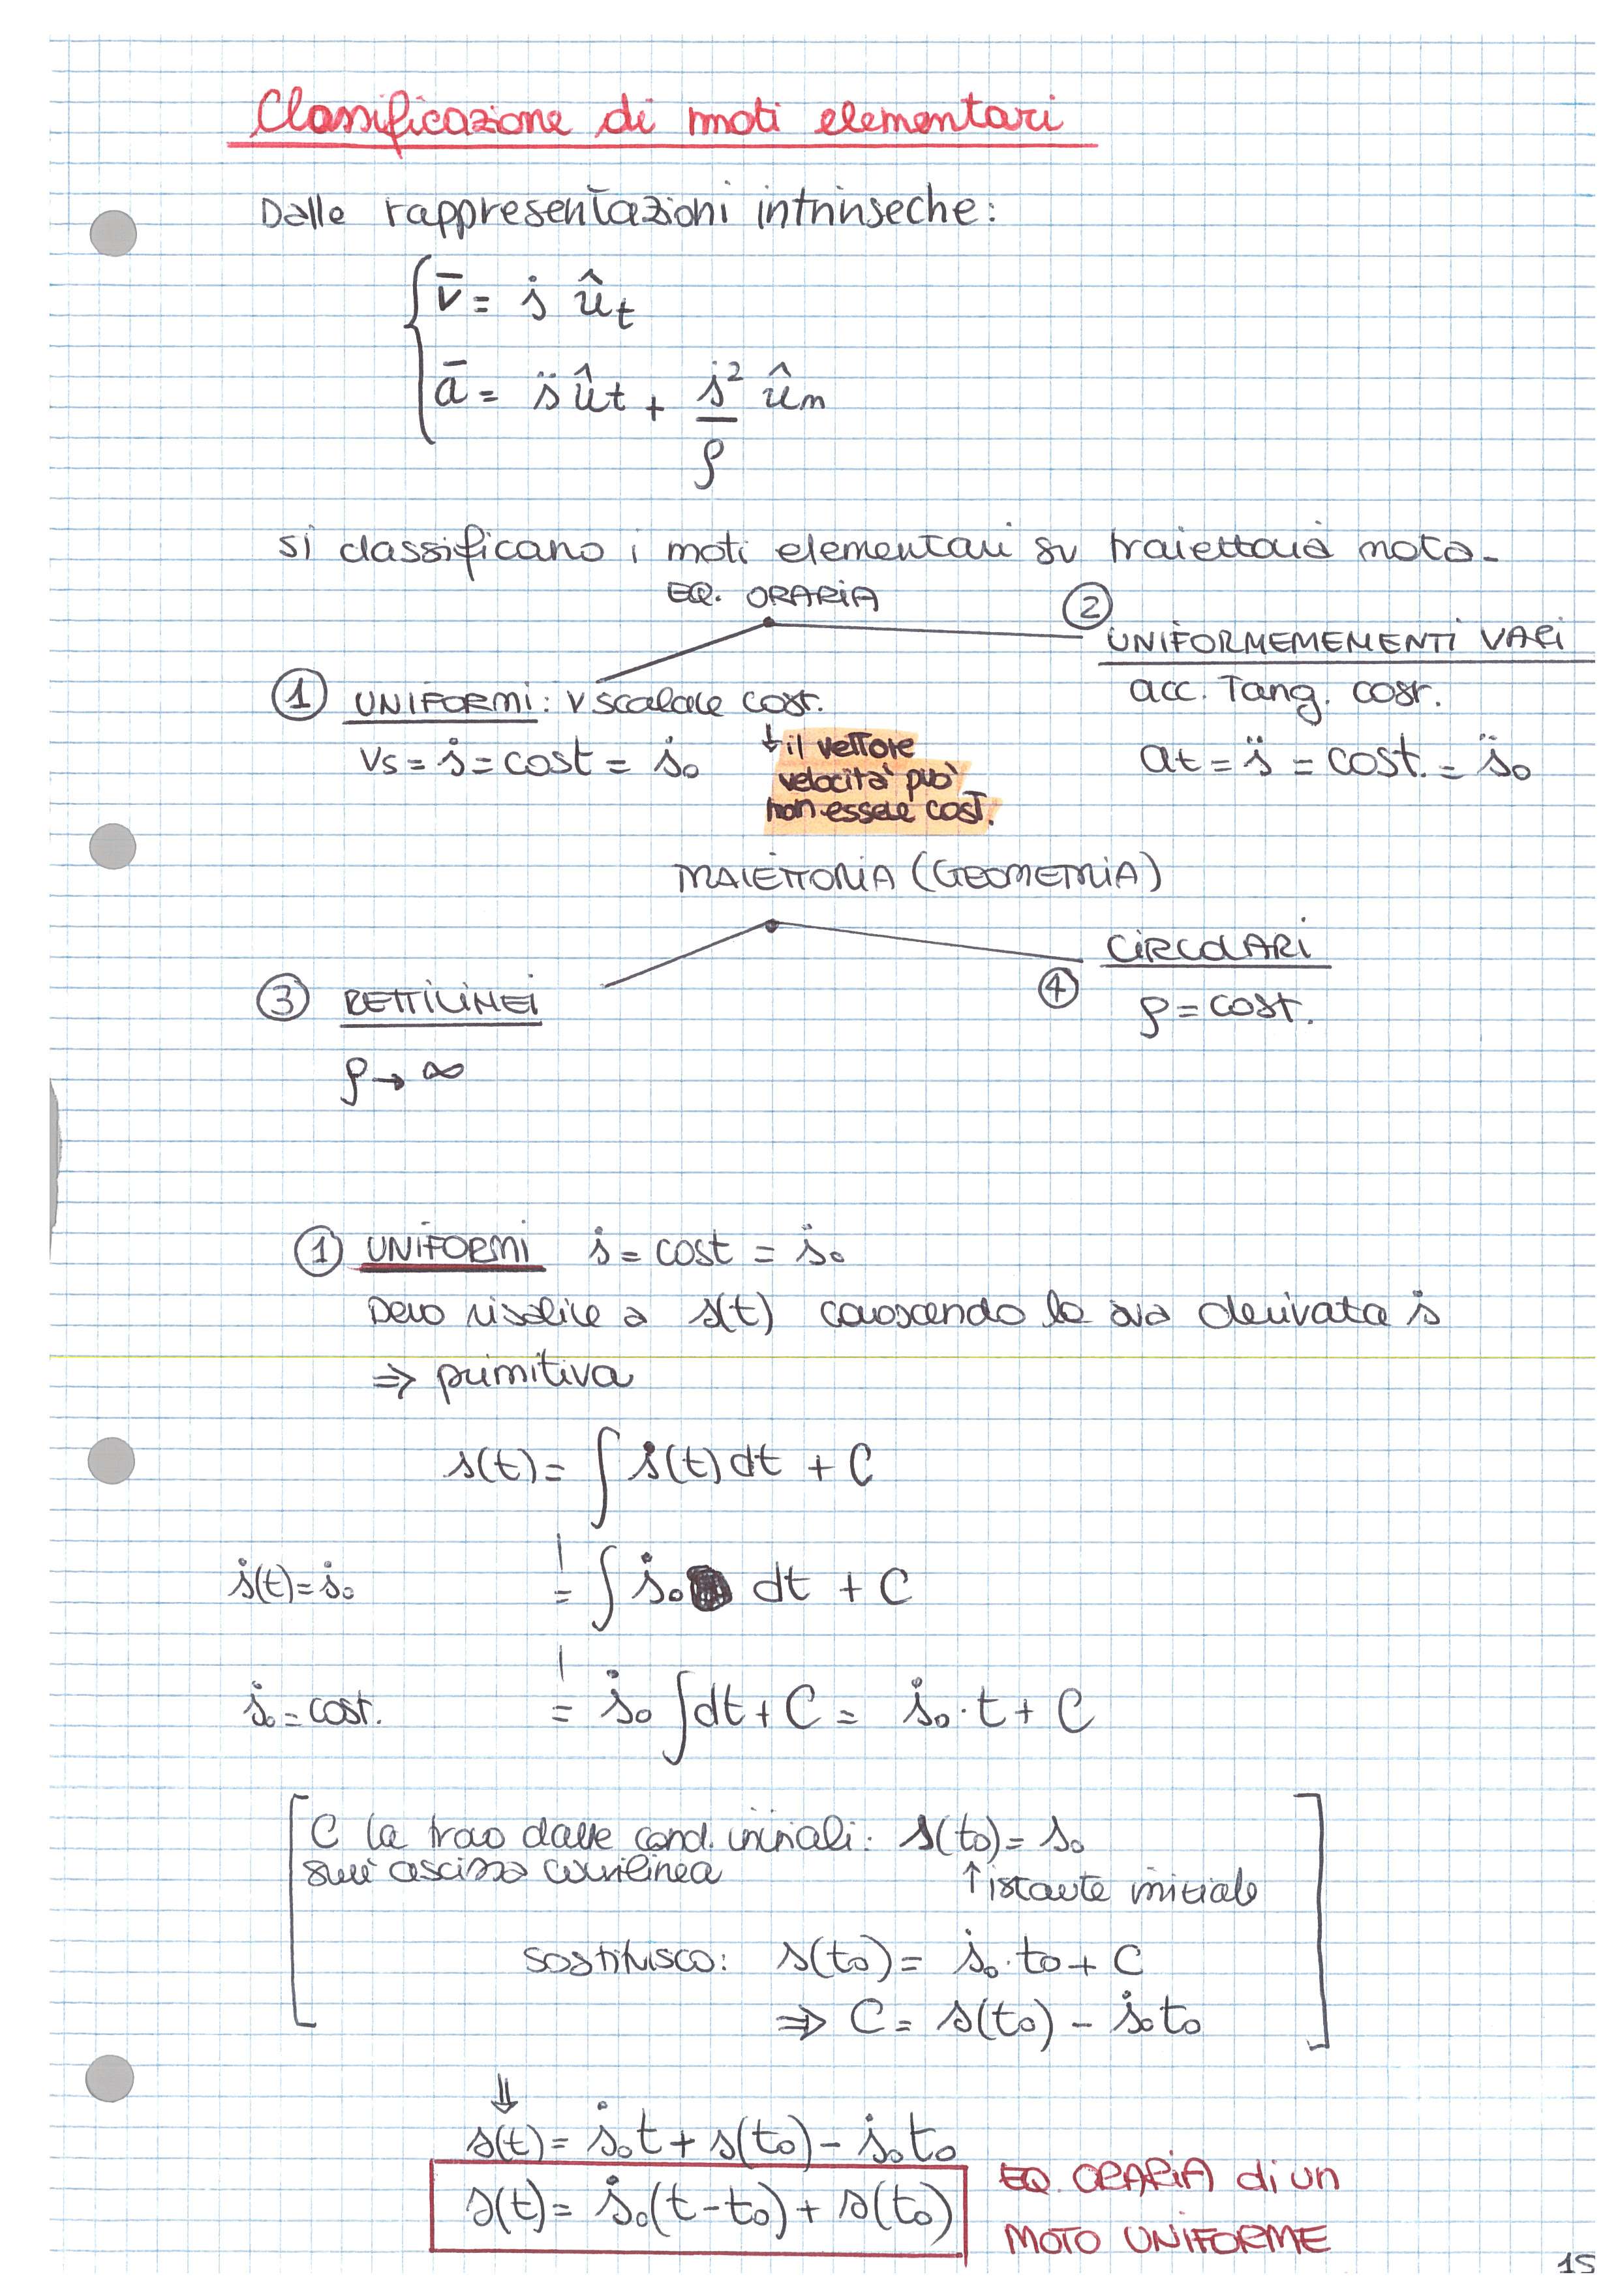 Classificazione di moti elementari
Dalle rappresentazioni intrinseche:
v̄ = ṡ û_t
ā = s̈ û_t + ṡ²/ρ û_n
si classificano i moti elementari su traiettoria nota.
EQ. ORARIA
① UNIFORMI: v scalare cost.
vs = ṡ = cost = ṡ₀
↓ il vettore
velocità può
non essere cost.
② UNIFORMEMEMENTI VARI
acc. Tang. cost.
at = s̈ = cost. = s̈₀
TRAIETTORIA (GEOMETRIA)
③ RETTILINEI
ρ → ∞
④ CIRCOLARI
ρ = cost.
① UNIFORMI ṡ = cost = ṡ₀
Devo risalire a s(t) conoscendo la sua derivata ṡ
⇒ primitiva
s(t) = ∫ ṡ(t) dt + C
ṡ(t) = ṡ₀ = ∫ ṡ₀ dt + C
ṡ₀ = cost. = ṡ₀ ∫ dt + C = ṡ₀ · t + C
C la trovo dalle cond. iniziali: s(t₀) = s₀
sull'ascissa curvilinea ↑ istante iniziale
sostituisco: s(t₀) = ṡ₀ · t₀ + C
⇒ C = s(t₀) - ṡ₀t₀
⇓
s(t) = ṡ₀t + s(t₀) - ṡ₀t₀
s(t) = ṡ₀(t-t₀) + s(t₀)
EQ. ORARIA di un
MOTO UNIFORME
15